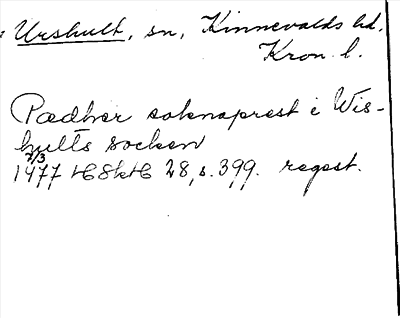 Urshult, sn, Kinnevalds hd,
Kron. l.
Pædher soknaprest i Wis-
hults socken
7/3
1477 HSkH 28, s. 399. regest.